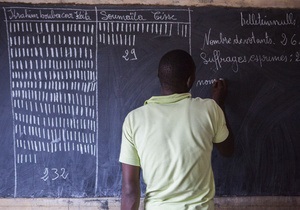 Ibrahim boubacar Keita
Soumaïla Cissé
29
232
Bulletins nuls
Nombre de votants: 26
Suffrages exprimés: 2
nom